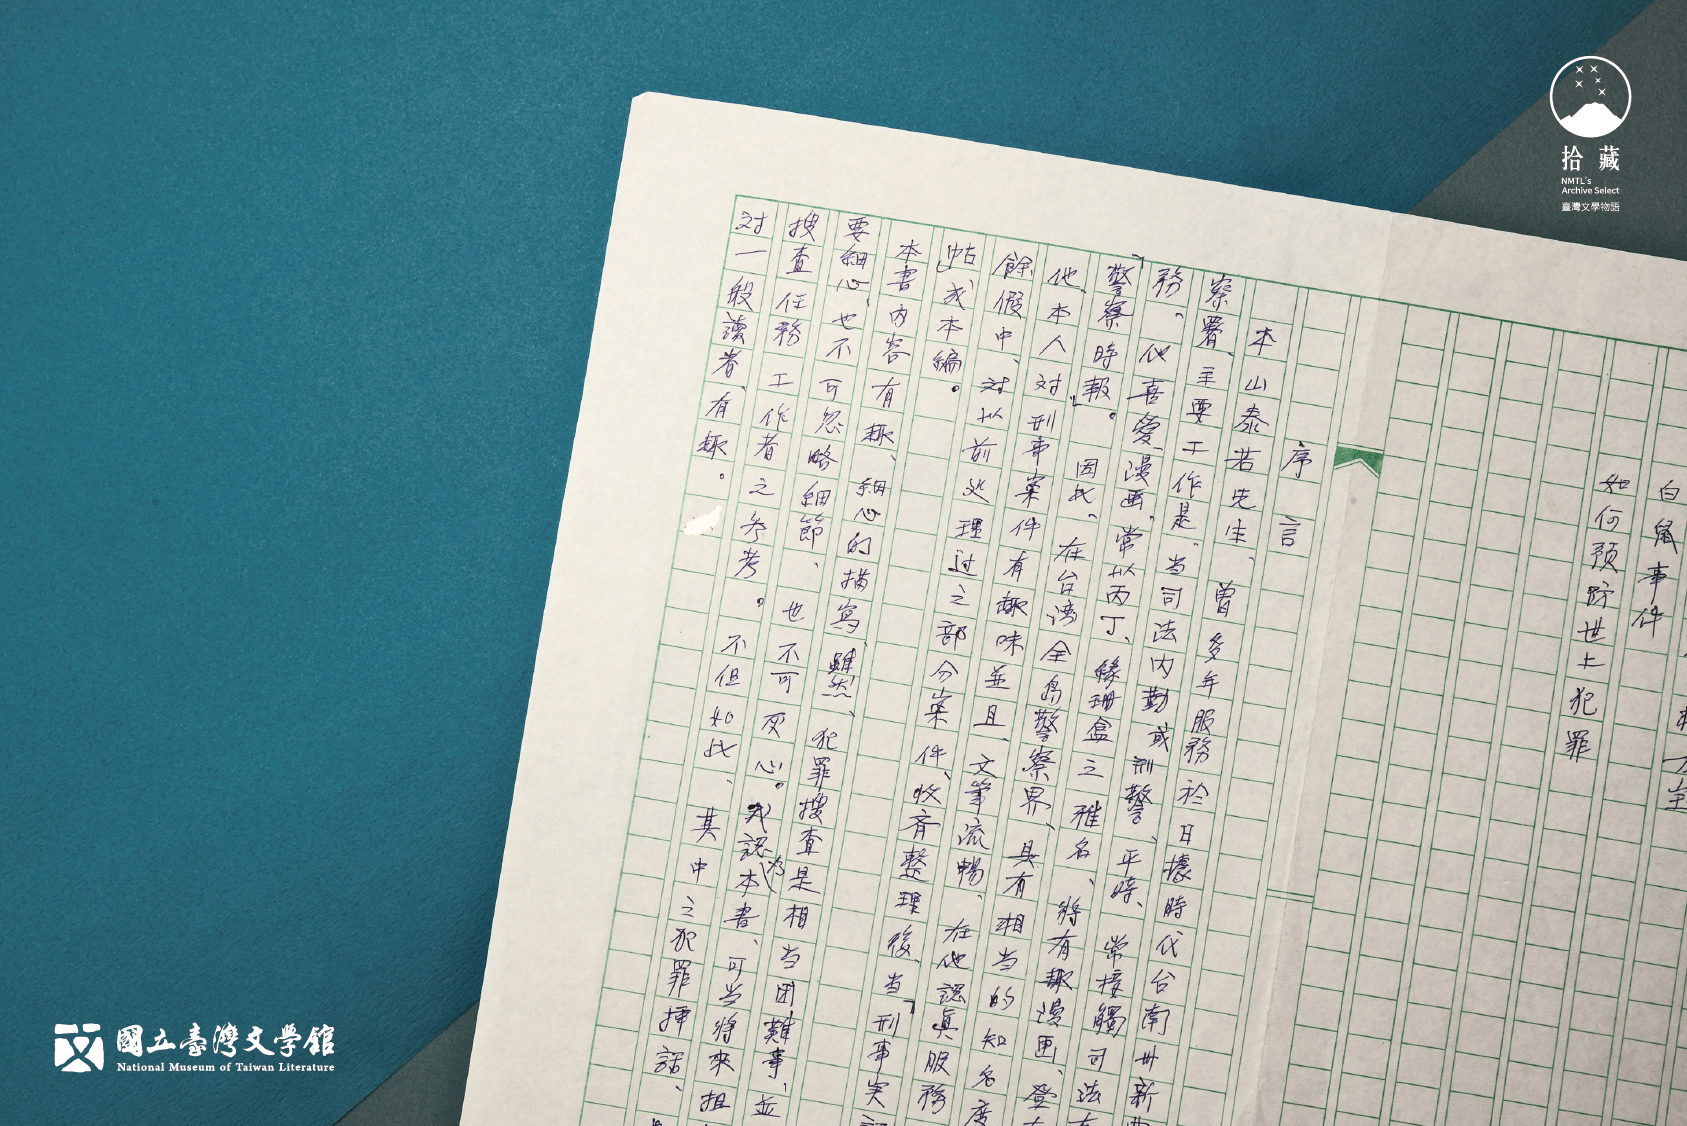 白鼠事件
如何預防世上犯罪
序言
本山泰若先生、曽多年服務於日據時代台南州新
察署、主要工作是、当司法内勤或刑警、平時、常接觸司法
務、他喜愛漫画、常以丙丁、緣珊盒之雅名、將有趣漫画、登
「警察時報」。因此、在台湾全島警察界、具有相当的知名度
他、本人对刑事案件有趣味並且、文筆流暢、在他認真服務
餘假中、对以前处理过之部分案件、收斉整理後、当「刑事実
帖」成本編。
本書内容有趣、細心的描寫、雖然、犯罪搜查是相当困難事、並
要細心、也不可忽略細節、也不可灰心。我認為本書、可当將來担
搜查任務工作者之参考。不但如此、其中之犯罪揷話、
对一般讀者、有趣。
拾藏
NMTL's
Archive Select
臺灣文學物語
國立臺灣文学館
National Museum of Taiwan Literature